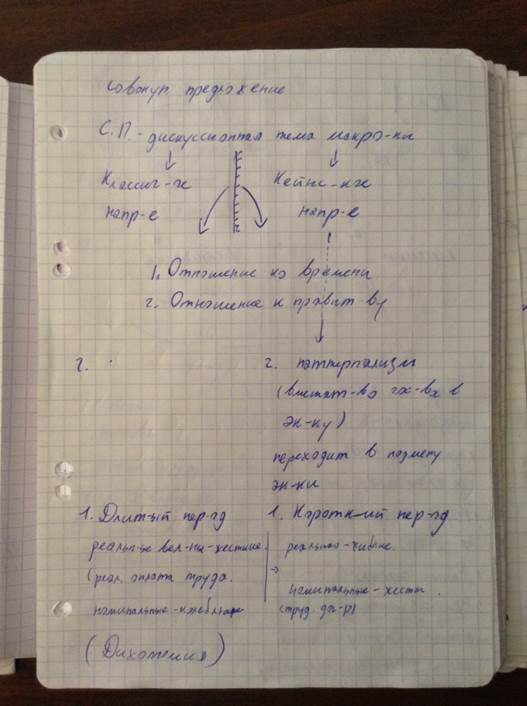 совокуп предложение
С.П. - дискуссионная тема макро-ки
Классич-ое Кейнс-кое
напр-е напр-е
1. Отношение ко времени
2. Отношение к правит-ву
2. 2. паттернализм
(вмешат-во гос-ва в
эк-ку)
переходит в
эк-ки
1. Длит-ый пер-од 1. Короткий пер-од
реальные вел-ны - жесткие реальные - гибкие.
(реал. оплата труда.
номинальные - номинальные - жестк.
(труд. дог-р)
(Дихотомия)